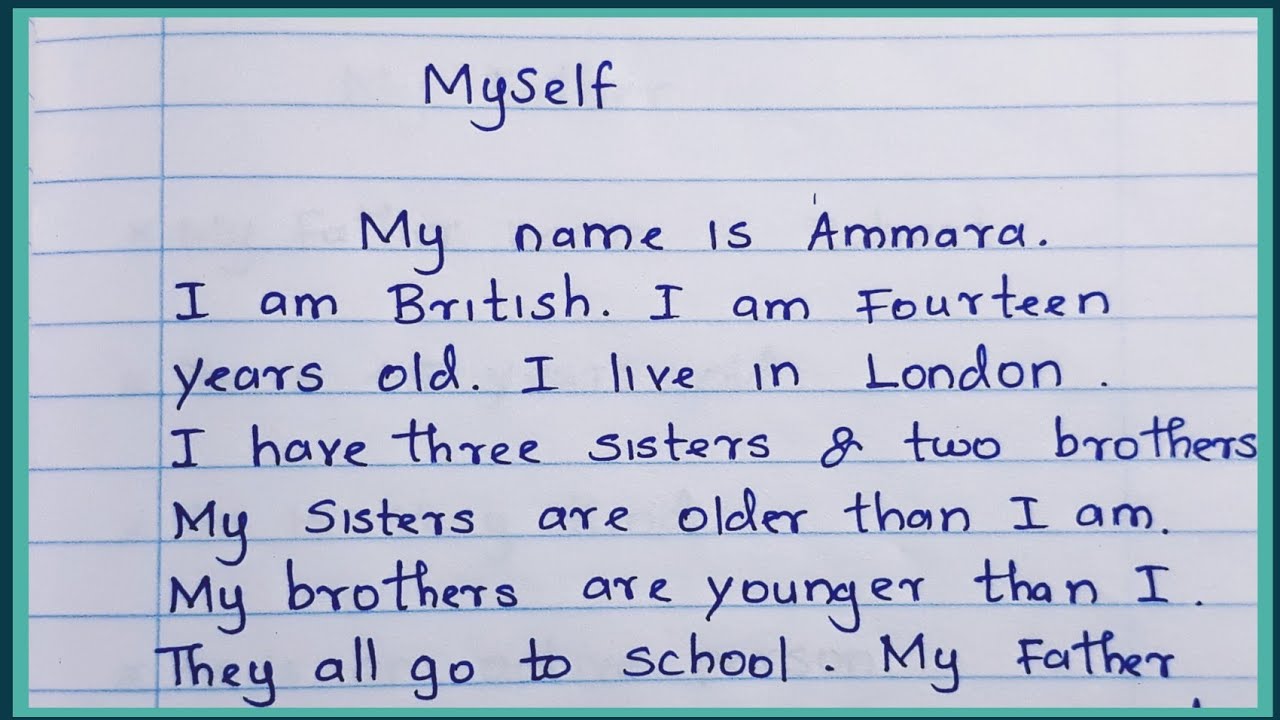 Myself
My name is Ammara.
I am British. I am Fourteen
years old. I live in London.
I have three sisters & two brothers
My Sisters are older than I am.
My brothers are younger than I.
They all go to school. My Father